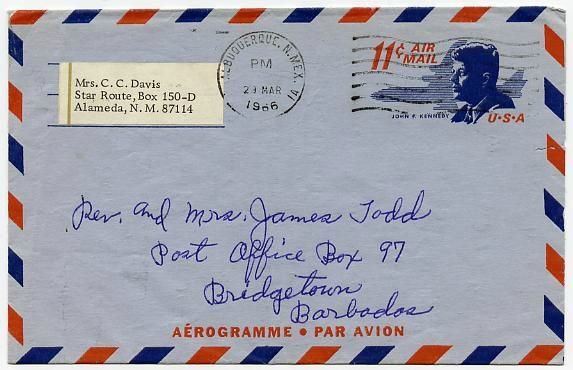 Mrs. C. C. Davis
Star Route, Box 150-D
Alameda, N. M. 87114
ALBUQUERQUE, N.MEX.
PM
29 MAR
1966
1A
11¢ AIR MAIL
JOHN F. KENNEDY
U·S·A
Rev. and Mrs. James Todd
Post Office Box 97
Bridgetown
Barbados
AÉROGRAMME • PAR AVION